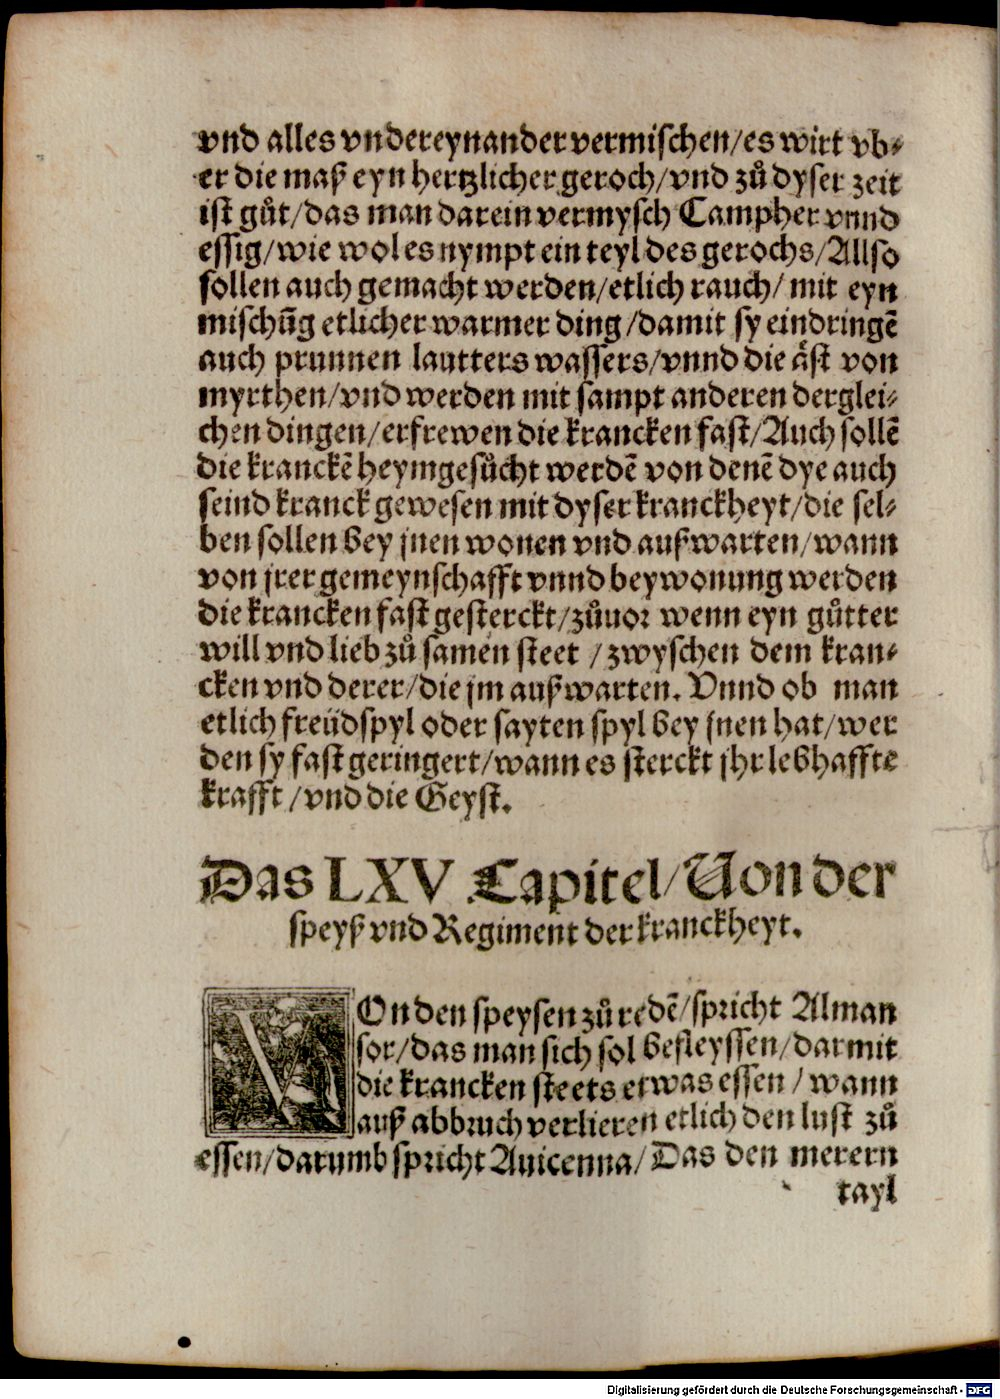 vnd alles vndereynander vermischen/es wirt vb⸗
er die maß eyn hertzlicher geroch/vnd zů dyser zeit
ist gůt/das man darein vermysch Campher vnnd
essig/wie wol es nympt ein teyl des gerochs/Allso
sollen auch gemacht werden/etlich rauch/ mit eyn
mischūg etlicher warmer ding/damit sy eindringē
auch prunnen lautters wassers/vnnd die äst von
myrthen/vnd werden mit sampt anderen derglei⸗
chen dingen/erfrewen die krancken fast/Auch sollē
die kranckē heymgesůcht werdē von denē dye auch
seind kranck gewesen mit dyser kranckheyt/die sel⸗
ben sollen bey jnen wonen vnd außwarten/wann
von jrer gemeynschafft vnnd beywonung werden
die krancken fast gesterckt/zůuor wenn eyn gůtter
will vnd lieb zů samen steet / zwyschen dem kran⸗
cken vnd derer/die jm außwarten. Vnnd ob man
etlich freüdspyl oder sayten spyl bey jnen hat/wer
den sy fast geringert/wann es sterckt jhr lebhaffte
krafft /vnd die Geyst.
Das LXV Capitel/Von der
speyß vnd Regiment der kranckheyt.
VOn den speysen zů redē/spricht Alman
sor/das man sich sol befleyssen/darmit
die krancken steets etwas essen / wann
auß abbruch verlieren etlich den lust zů
essen/darumb spricht Auicenna/Das den merern
tayl
Digitalisierung gefördert durch die Deutsche Forschungsgemeinschaft - DFG